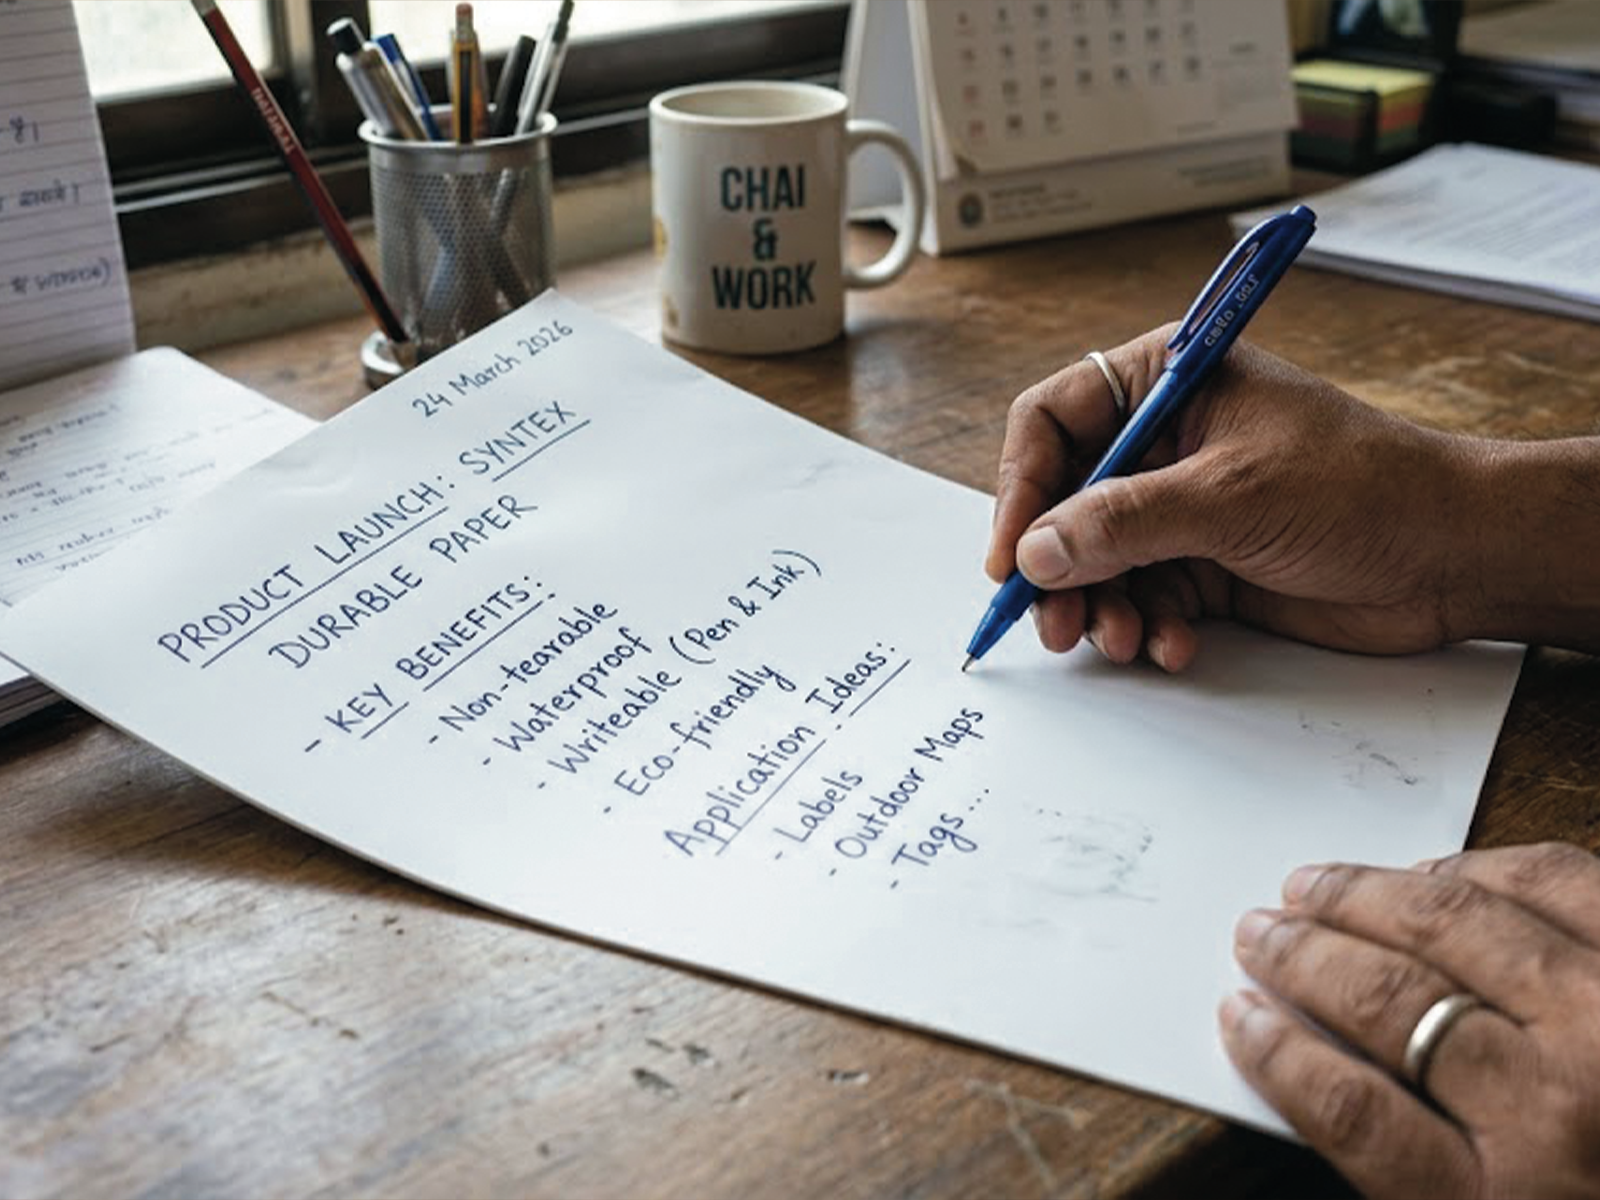 24 March 2026
PRODUCT LAUNCH: SYNTEX
DURABLE PAPER
- KEY BENEFITS:
- Non-tearable
- Waterproof
- Writeable (Pen & Ink)
- Eco-friendly
Application Ideas:
- Labels
- Outdoor Maps
- Tags...
CHAI
&
WORK